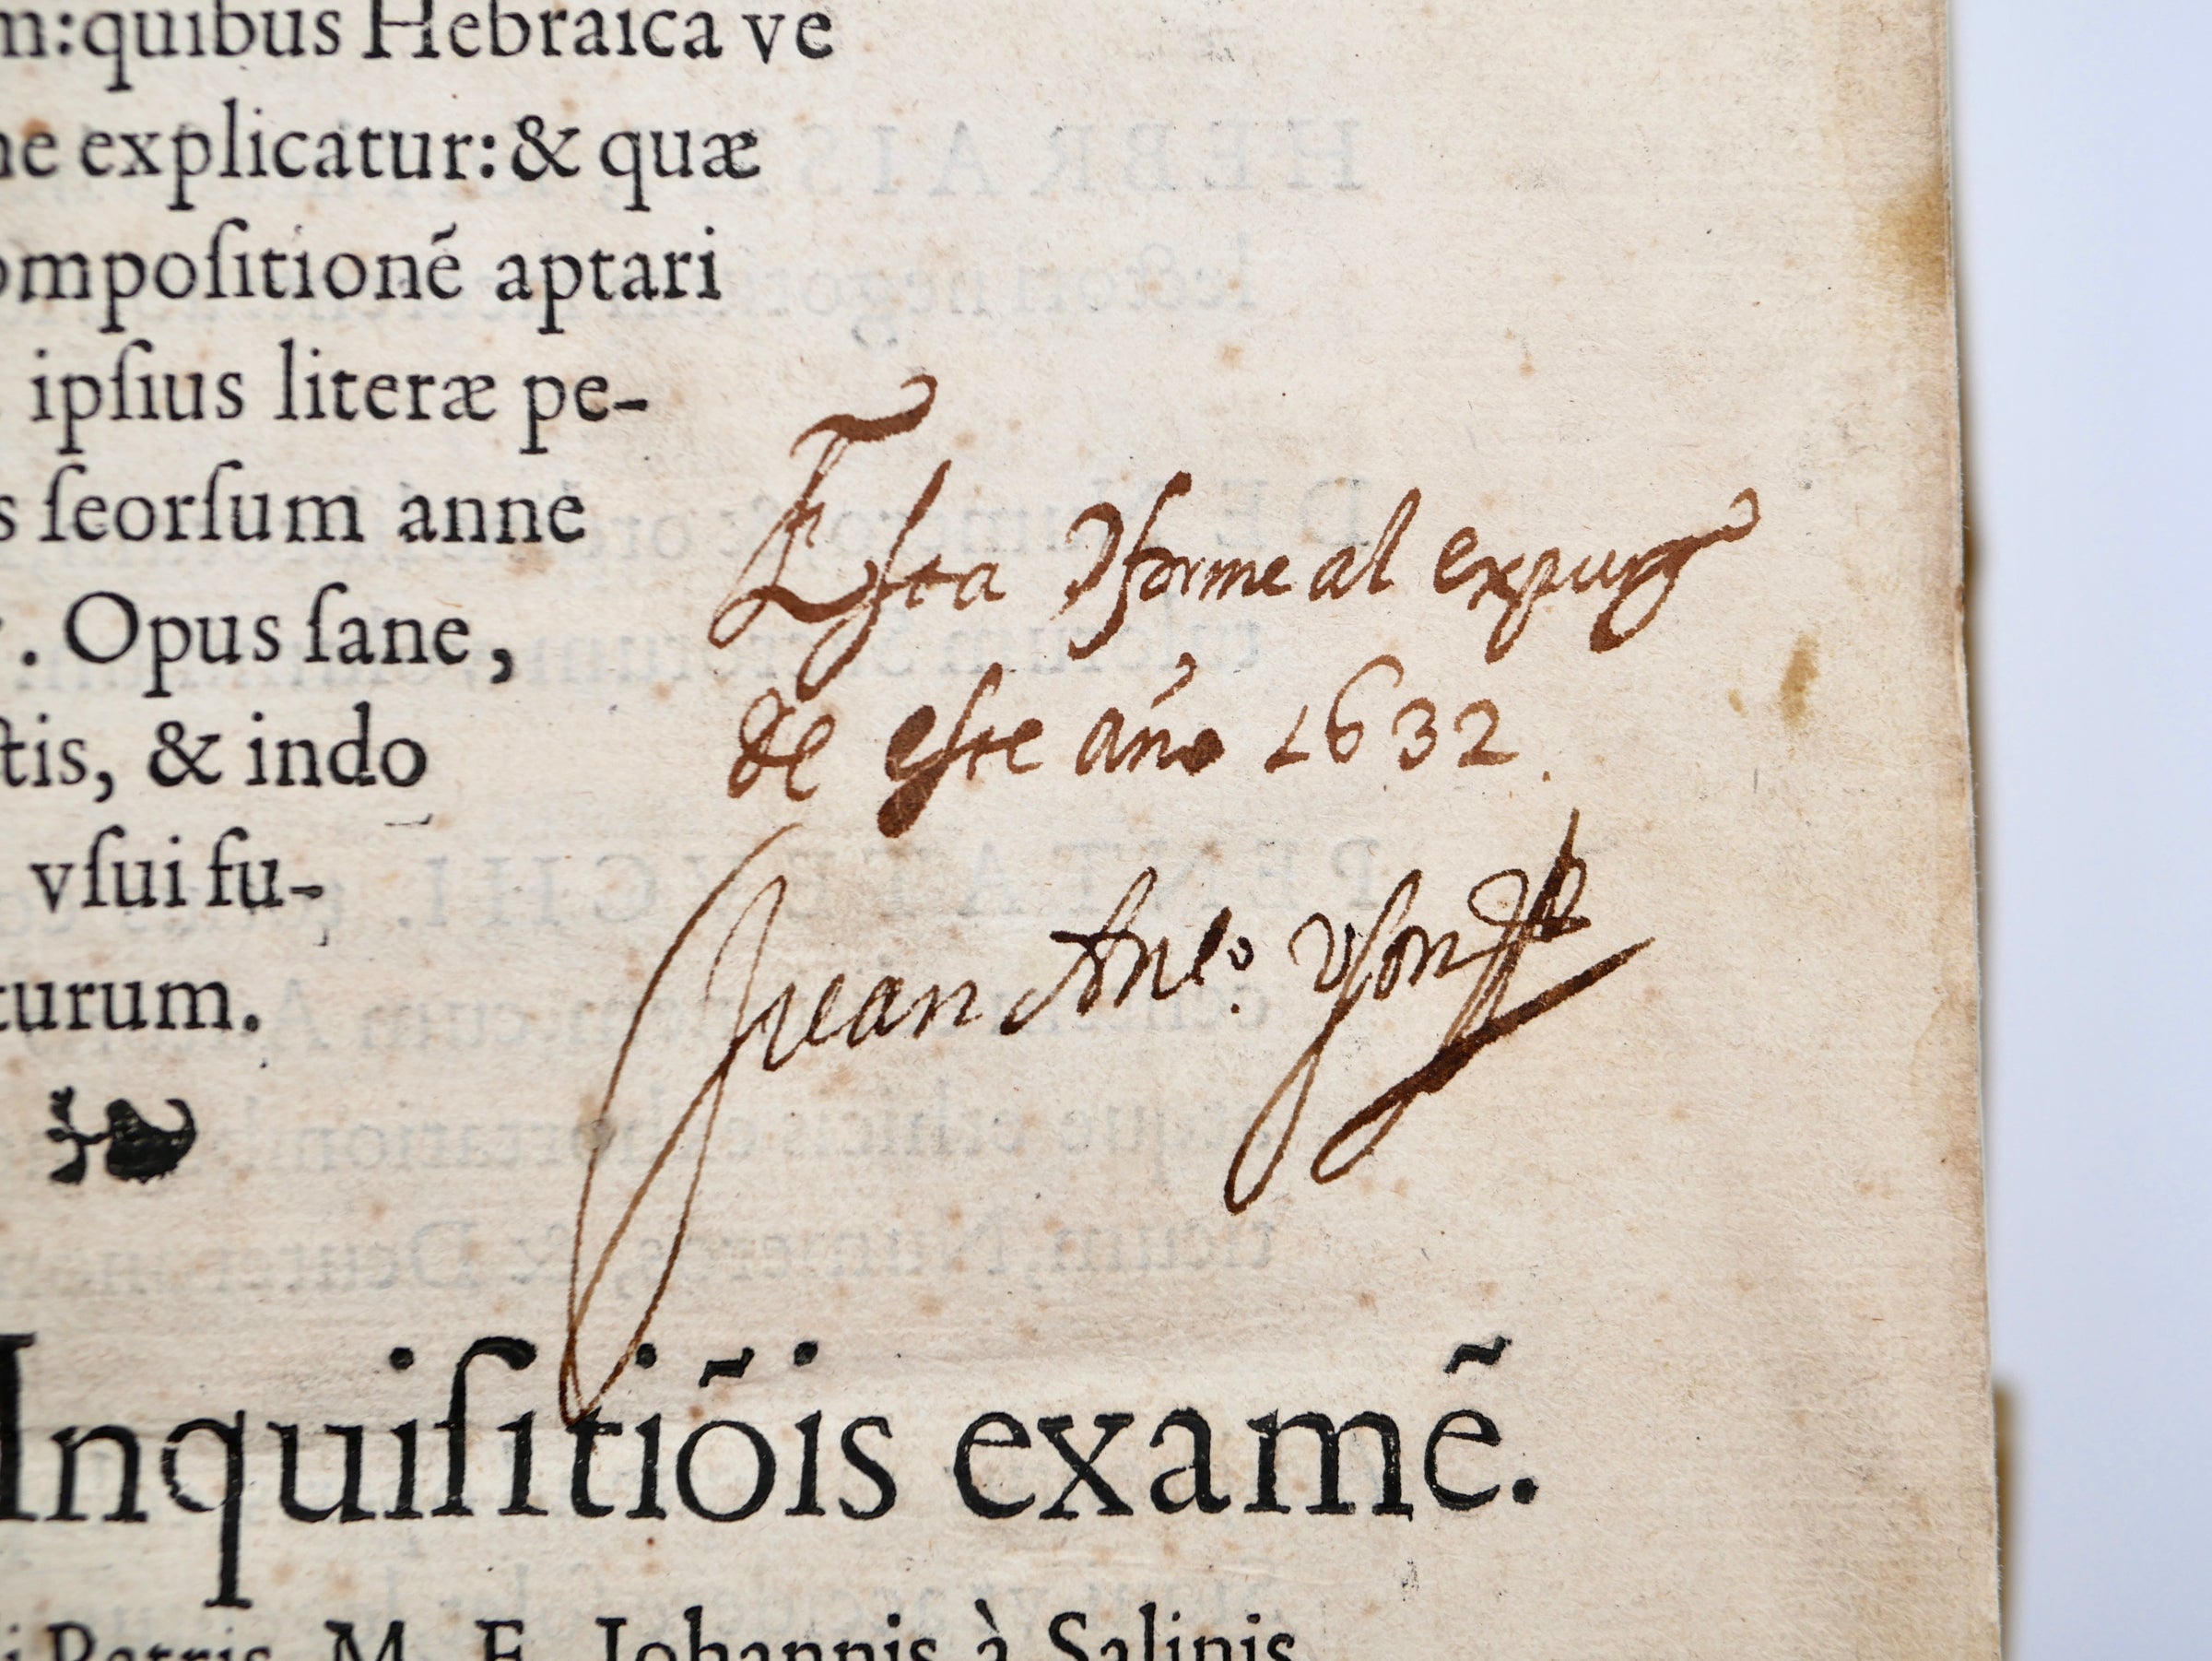 m:quibus Hebraica ve
ne explicatur: & quæ
ompoſitionẽ aptari
ipſius literæ pe-
s ſeorſum anne
. Opus ſane,
ſtis, & indo
vſui fu-
turum.
Eſta ꝯforme al expurgᵒ
de eſte año 1632.
Juan Antᵒ.
Inquiſitiõis examẽ.
i Patris, M. F. Iohannis à Salinis